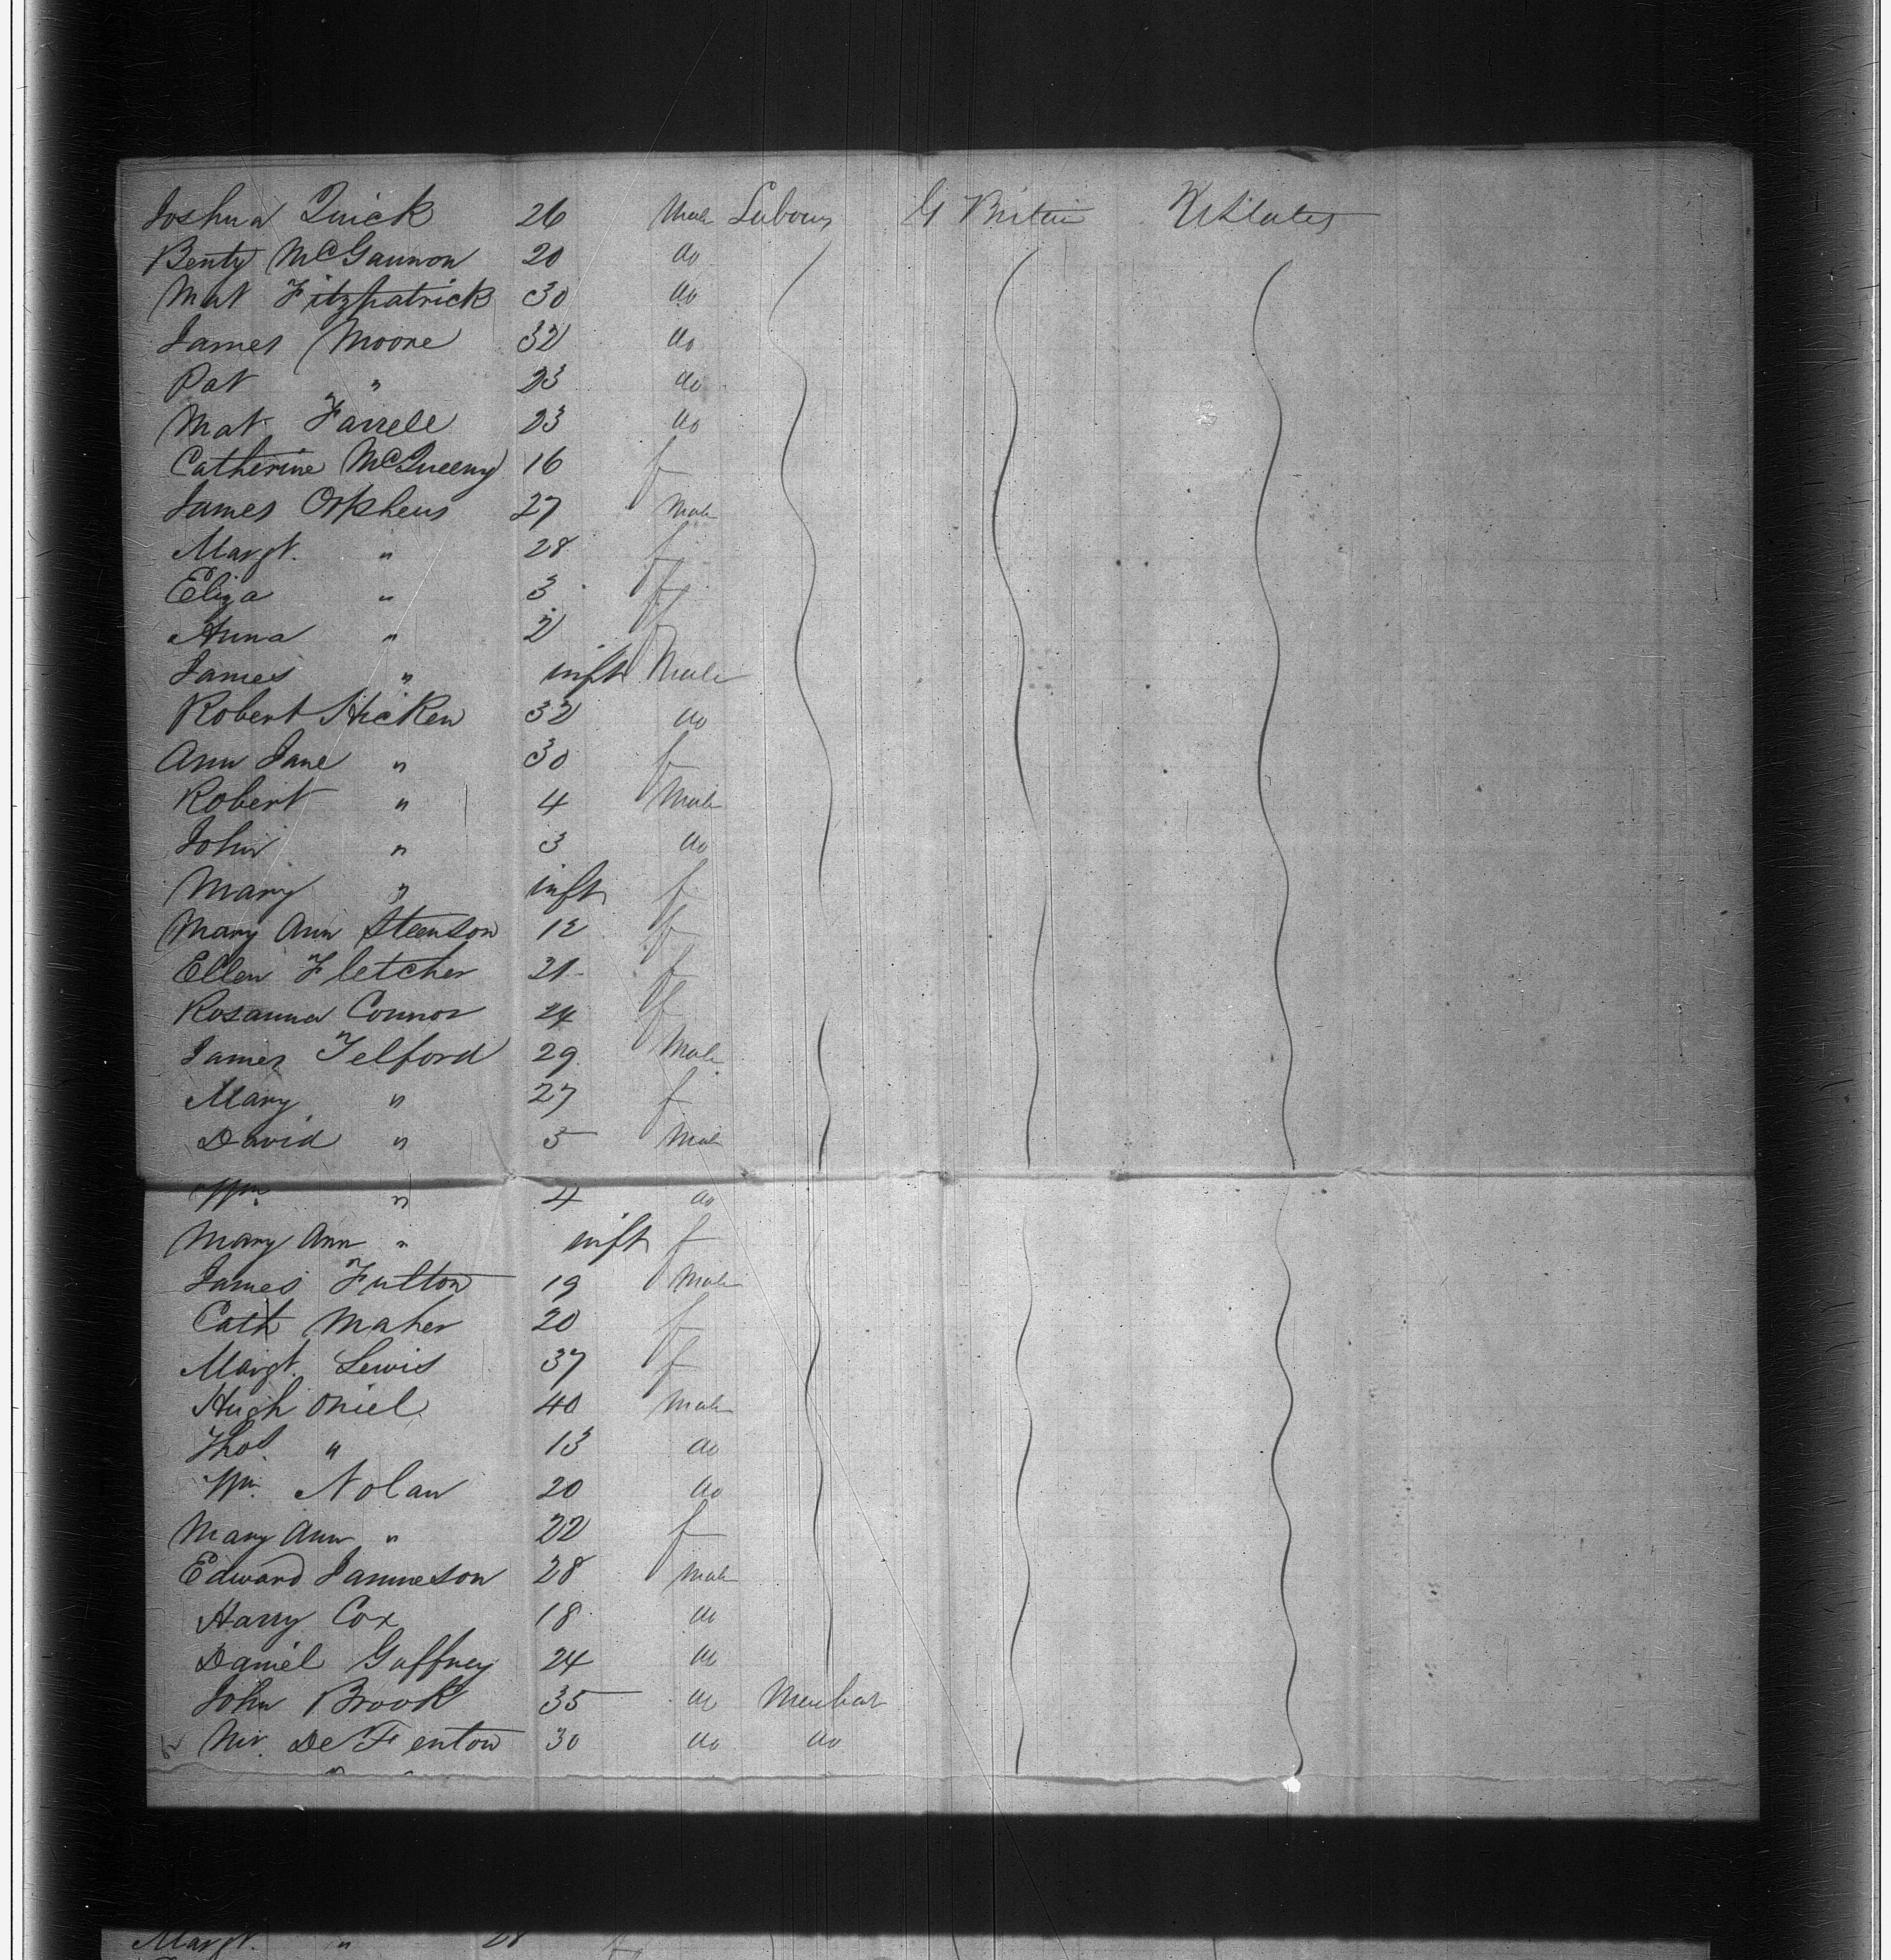 Joshua Quick 26 Male Labour G Britain U States
Benty McGannon 20 do
Mat Fitzpatrick 30 do
James Moore 32 do
Pat " 23 do
Mat Farrell 23 do
Catherine McQueeny 16 f
James Orpheus 27 Male
Margt. " 28 f
Eliza " 3 f
Anna " 2 f
James " inft Male
Robert Hicken 32 do
Ann Jane " 30 f
Robert " 4 Male
John " 3 do
Mary " inft f
Mary Ann Steenson 12 f
Ellen Fletcher 21 f
Rosanna Connor 24 f
James Telford 29 Male
Mary " 27 f
David " 5 Male
Wm " 4 do
Mary Ann " inft f
James Fulton 19 Male
Cath Maher 20 f
Margt. Lewis 37 f
Hugh Oniel 40 Male
Thos " 13 do
Wm. Nolan 20 do
Mary Ann " 22 f
Edward Jammeson 28 Male
Harry Cox 18 do
Daniel Gaffney 24 do
John Brook 35 do
Mr. De Fenton 30 do do
Margt. " 28